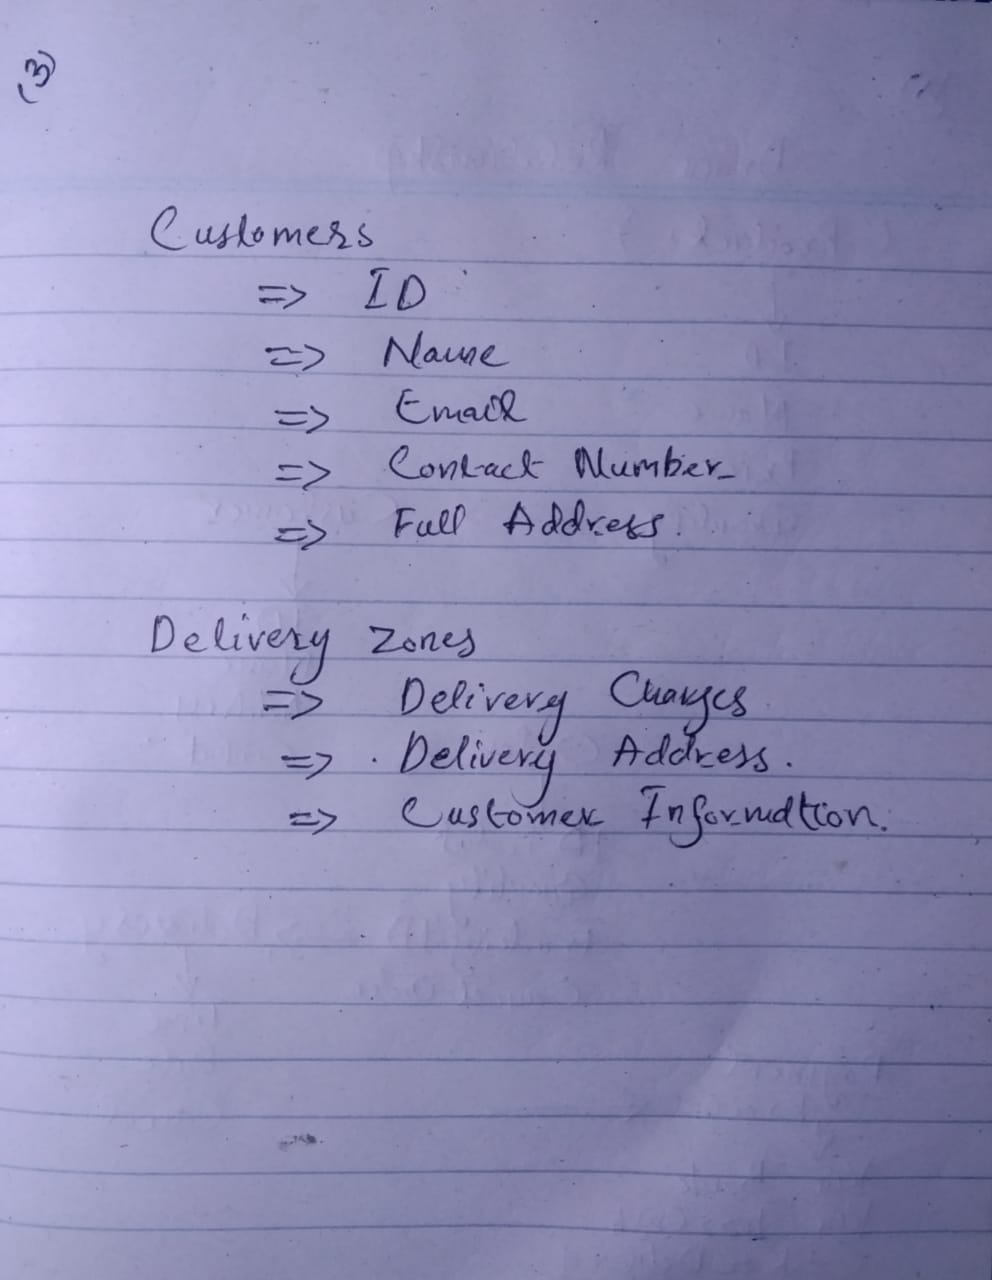 (3)
Customers
=> ID
=> Name
=> Email
=> Contact Number
=> Full Address.
Delivery Zones
=> Delivery Charges
=> Delivery Address.
=> Customer Information.